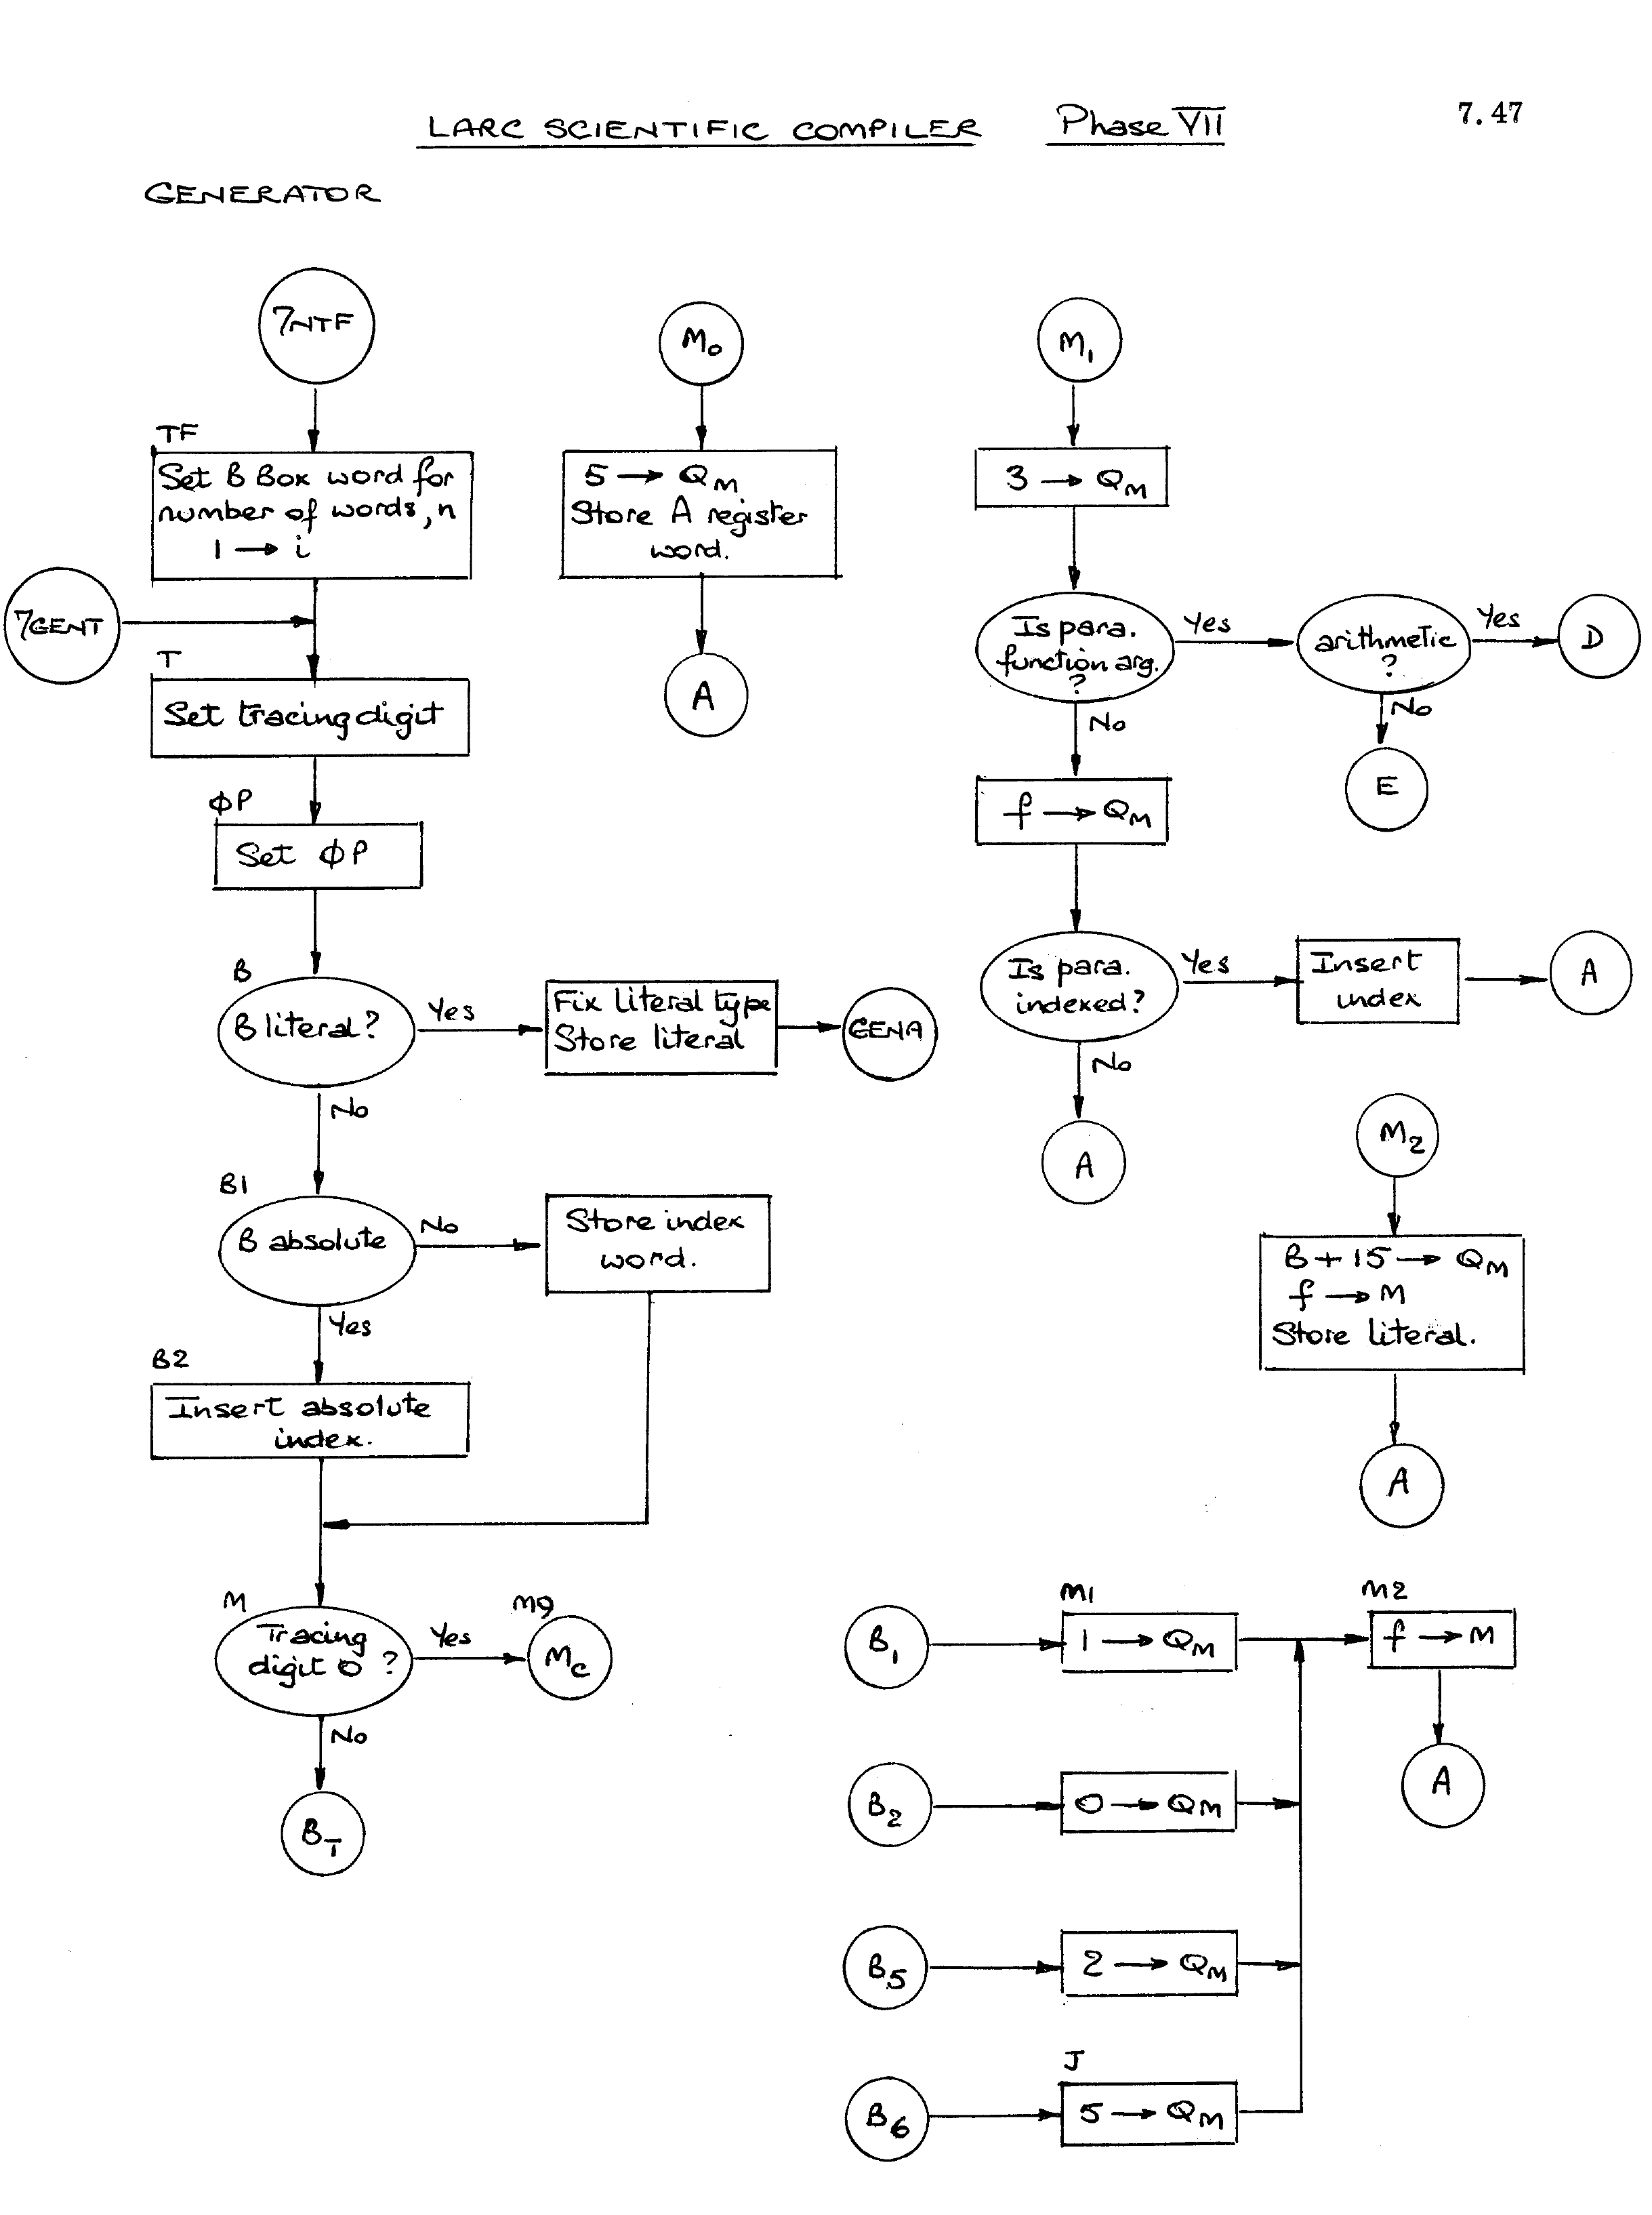 LARC SCIENTIFIC COMPILER Phase VII 7.47
GENERATOR
7NTF
TF
Set B Box word for
number of words, n
1 → i
7GENT
T
Set tracing digit
ΦP
Set ΦP
B
B literal?
Yes
Fix literal type
Store literal
GENA
No
B1
B absolute
No
Store index
word.
Yes
B2
Insert absolute
index.
M
Tracing
digit 0 ?
Yes
M9
Mc
No
BT
M0
5 → QM
Store A register
word.
A
M1
3 → QM
Is para.
function arg.
?
Yes
arithmetic
?
Yes
D
No
E
No
f → QM
Is para.
indexed?
Yes
Insert
index
A
No
A
M2
B + 15 → QM
f → M
Store literal.
A
B1
M1
1 → QM
M2
f → M
A
B2
0 → QM
B5
2 → QM
B6
J
5 → QM